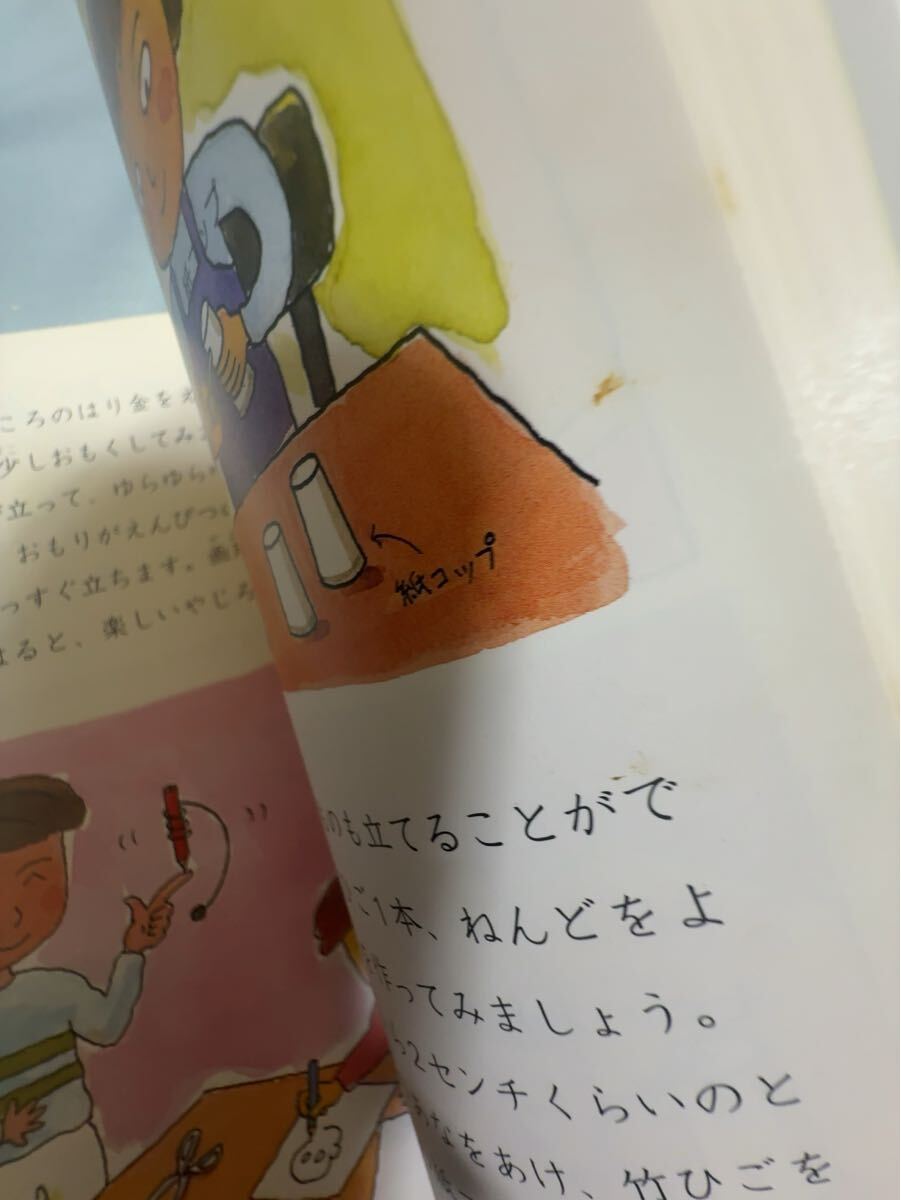 ころのはり金を
少しおもくしてみ
立って、ゆらゆら
おもりがえんぴつ
っすぐ立ちます。画
まると、楽しいやじろ
紙コップ
のも立てることがで
ご1本、ねんどをよ
作ってみましょう。
2センチくらいのと
あなをあけ、竹ひごを